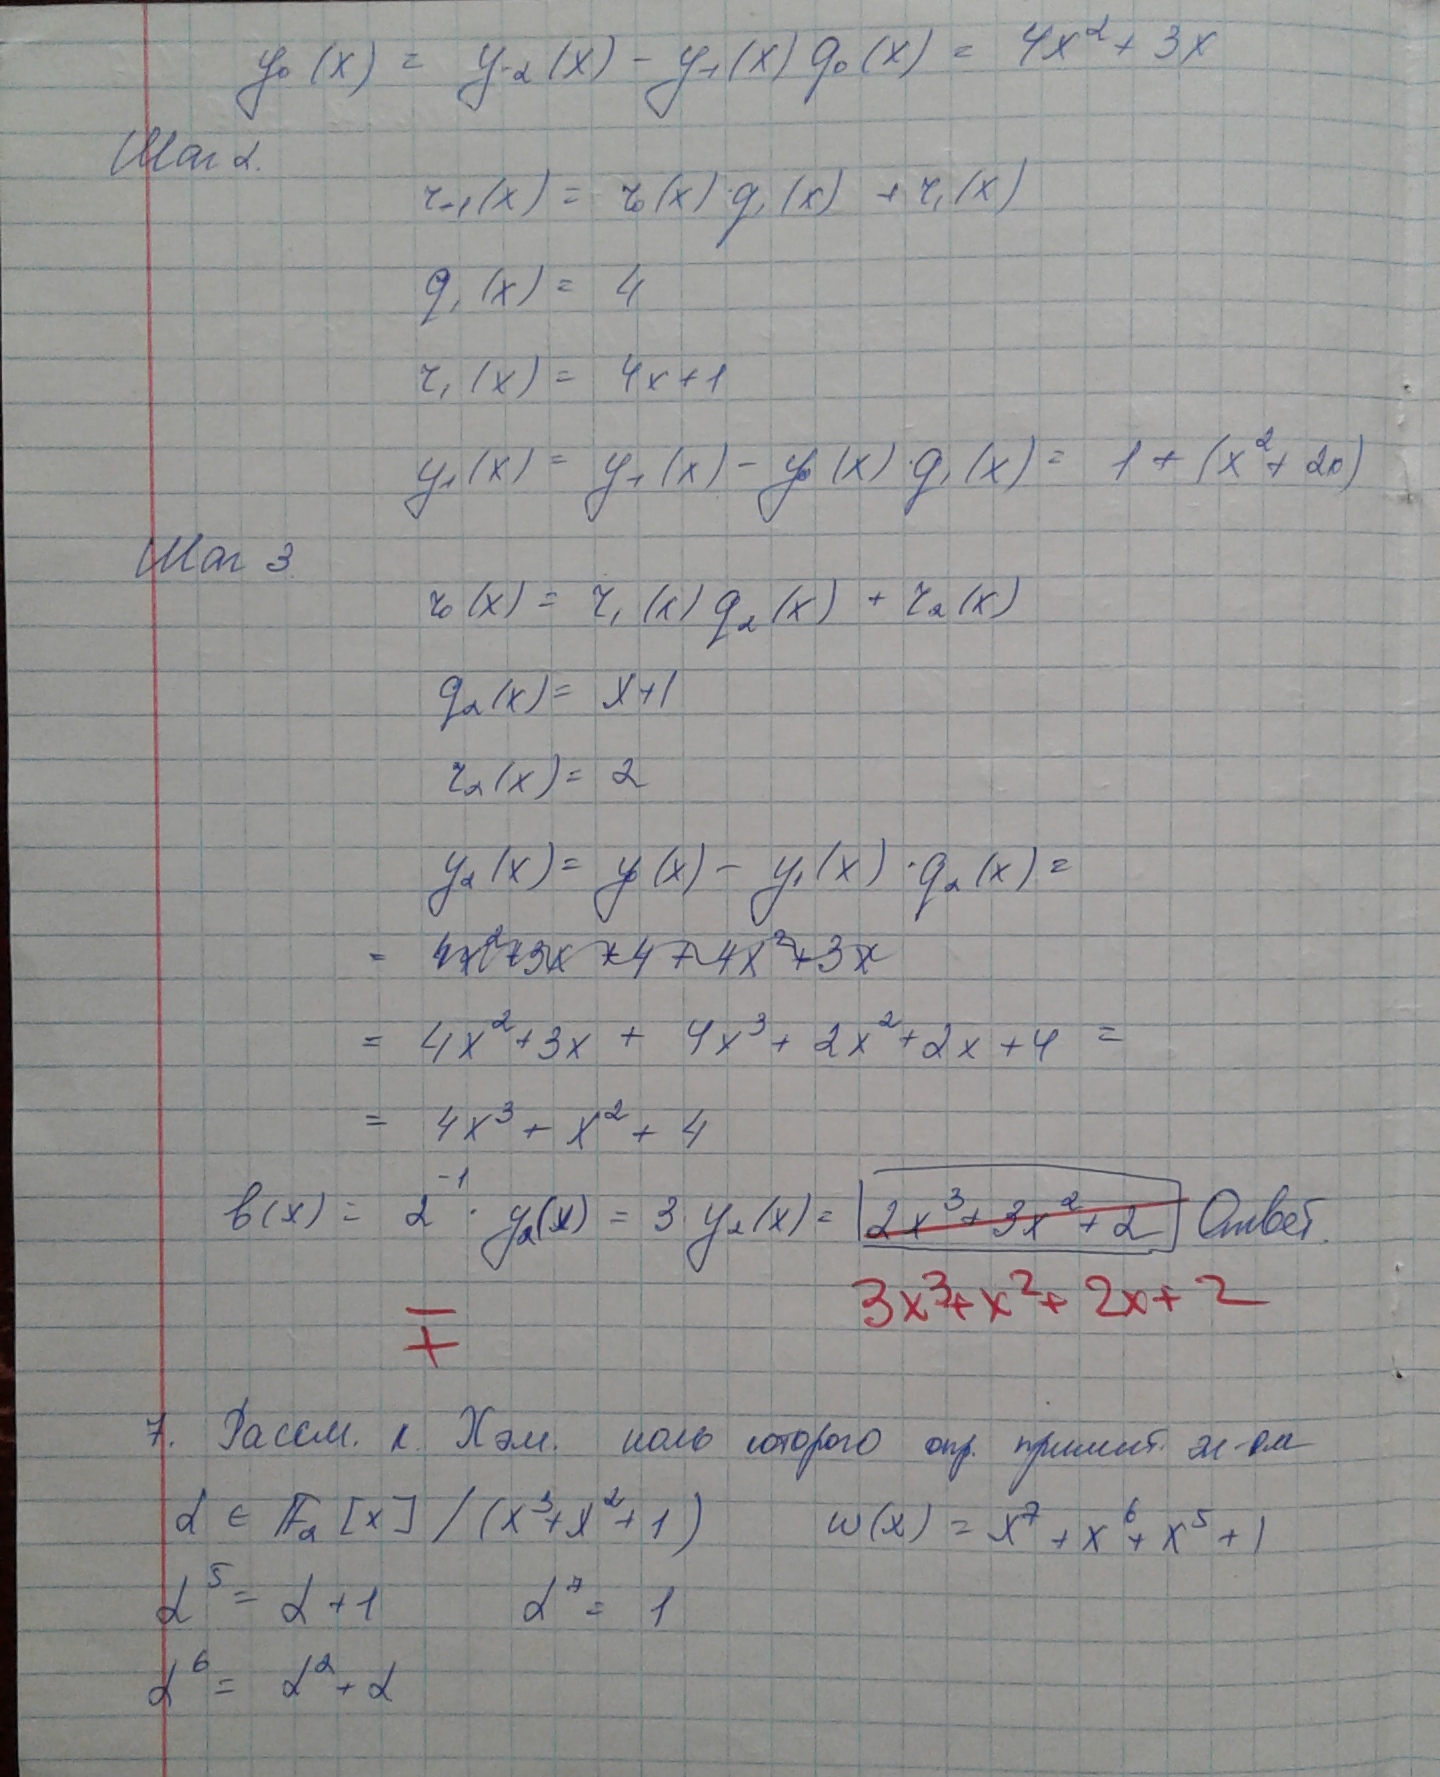 y₀(x) = y₋₂(x) - y₋₁(x) q₀(x) = 4x² + 3x
Шаг 2.
r₋₁(x) = r₀(x) · q₁(x) + r₁(x)
q₁(x) = 4
r₁(x) = 4x+1
y₁(x) = y₋₁(x) - y₀(x) · q₁(x) = 1 + (x² + 2x)
Шаг 3
r₀(x) = r₁(x) q₂(x) + r₂(x)
q₂(x) = x+1
r₂(x) = 2
y₂(x) = y₀(x) - y₁(x) · q₂(x) =
= 4x²+3x+4+4x²+3x
= 4x²+3x + 4x³+2x²+2x+4 =
= 4x³+x²+4
b(x) = 2⁻¹ · y₂(x) = 3 y₂(x) = 2x³+3x²+2 Ответ.
3x³+x²+2x+2
∓
7. Рассм. к. Хэм. ноль которого опр. примит. эл-ом
α ∈ F₂[x]/(x³+x²+1) w(x) = x⁷+x⁶+x⁵+1
α⁵ = α+1 α⁷ = 1
α⁶ = α²+α